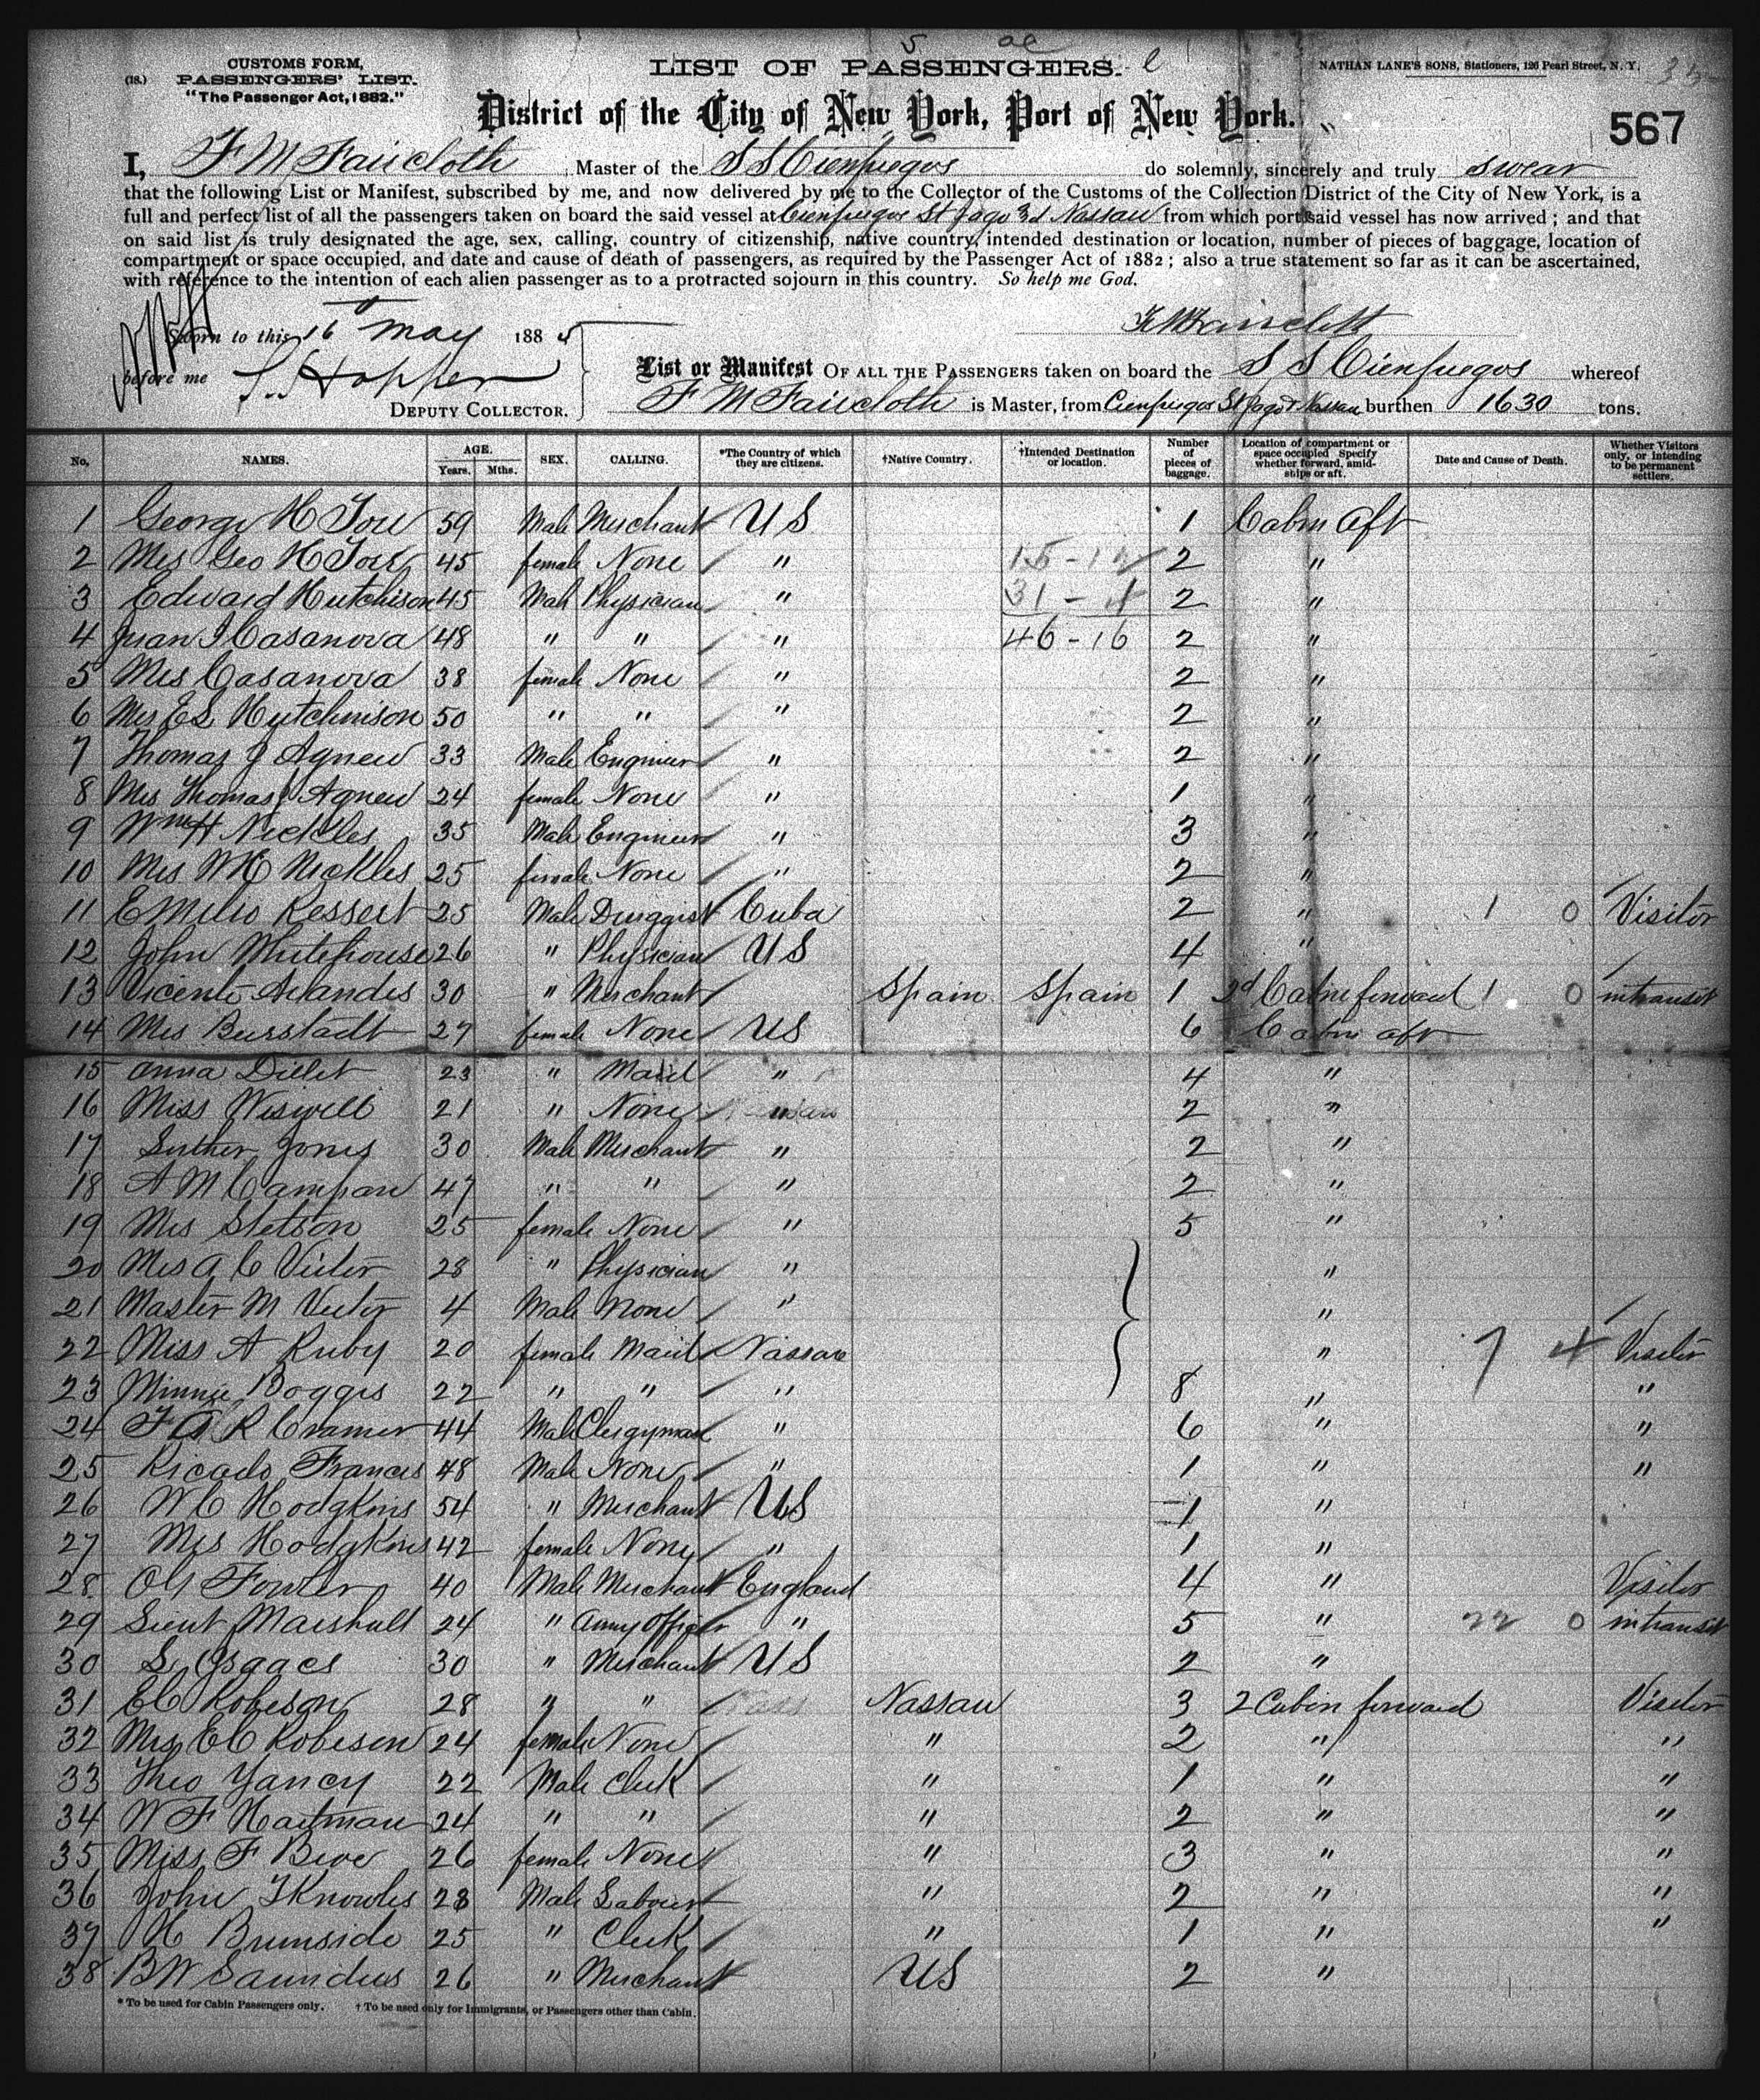 CUSTOMS FORM,
(18.) PASSENGERS' LIST.
"The Passenger Act, 1882."
LIST OF PASSENGERS.
NATHAN LANE'S SONS, Stationers, 126 Pearl Street, N. Y.
District of the City of New York, Port of New York.
567
I, F M Faircloth, Master of the S S Cienfuegos do solemnly, sincerely and truly swear
that the following List or Manifest, subscribed by me, and now delivered by me to the Collector of the Customs of the Collection District of the City of New York, is a
full and perfect list of all the passengers taken on board the said vessel at Cienfuegos St Jago Nassau from which port said vessel has now arrived; and that
on said list is truly designated the age, sex, calling, country of citizenship, native country, intended destination or location, number of pieces of baggage, location of
compartment or space occupied, and date and cause of death of passengers, as required by the Passenger Act of 1882; also a true statement so far as it can be ascertained,
with reference to the intention of each alien passenger as to a protracted sojourn in this country. So help me God.
F M Faircloth
Sworn to this 16th May 1885
before me S. Hopper
DEPUTY COLLECTOR.
List or Manifest OF ALL THE PASSENGERS taken on board the S S Cienfuegos whereof
F M Faircloth is Master, from Cienfuegos St Jago & Nassau burthen 1630 tons.
No. NAMES. AGE. Years. Mths. SEX. CALLING. *The Country of which they are citizens. †Native Country. †Intended Destination or location. Number of pieces of baggage. Location of compartment or space occupied Specify whether forward, amidships or aft. Date and Cause of Death. Whether Visitors only, or intending to be permanent settlers.
1 George H 59 Male Merchant US 1 Cabin Aft
2 Mrs Geo H 45 female None " 15-12 2 "
3 Edward Hutchison 45 Male Physician " 31-4 2 "
4 Juan J Casanova 48 " " " 46-16 2 "
5 Mrs Casanova 38 female None " 2 "
6 Mrs E S Hutchinson 50 " " " 2 "
7 Thomas J Agnew 33 Male Engineer " 2 "
8 Mrs Thomas J Agnew 24 female None " 1 "
9 Wm H Nickles 35 Male Engineer " 3 "
10 Mrs W H Nickles 25 female None " 2 "
11 Emilio Ressert 25 Male Druggist Cuba 2 " 1 0 Visitor
12 John Whitehouse 26 " Physician US 4 "
13 Vicente 30 " Merchant Spain Spain 1 2d Cabin forward 1 0 intransit
14 Mrs Burstadt 27 female None US 6 Cabin aft
15 Anna Dillet 23 " Maid " 4 "
16 Miss Wiswell 21 " None " 2 "
17 Luther Jones 30 Male Merchant " 2 "
18 A M Campan 47 " " " 2 "
19 Mrs Stetson 25 female None " 5 "
20 Mrs A C Victor 28 " Physician " "
21 Master M Victor 4 Male None " "
22 Miss A Ruby 20 female Maid Nassau " 7 4 Visitor
23 Minnie Boggis 22 " " " 8 " "
24 F A R Cramer 44 Male Clergyman " 6 " "
25 Ricado Frances 48 Male None " 1 " "
26 W C Hodgkins 54 " Merchant US 1 "
27 Mrs Hodgkins 42 female None " 1 "
28 Fowler 40 Male Merchant England 4 " Visitor
29 Lieut Marshall 24 " Army Officer " 5 " 22 0 intransit
30 S Isaacs 30 " Merchant US 2 "
31 E C Robeson 28 " " Nassau 3 2 Cabin forward Visitor
32 Mrs E C Robeson 24 female None " 2 " "
33 Theo Yancy 22 Male Clerk " 1 " "
34 W F Hartman 24 " " " 2 " "
35 Miss F 26 female None " 3 " "
36 John T Knowles 28 Male Labourer " 2 " "
37 H Burnside 25 " Clerk " 1 " "
38 B W Saunders 26 " Merchant US 2 "
* To be used for Cabin Passengers only. † To be used only for Immigrants, or Passengers other than Cabin.